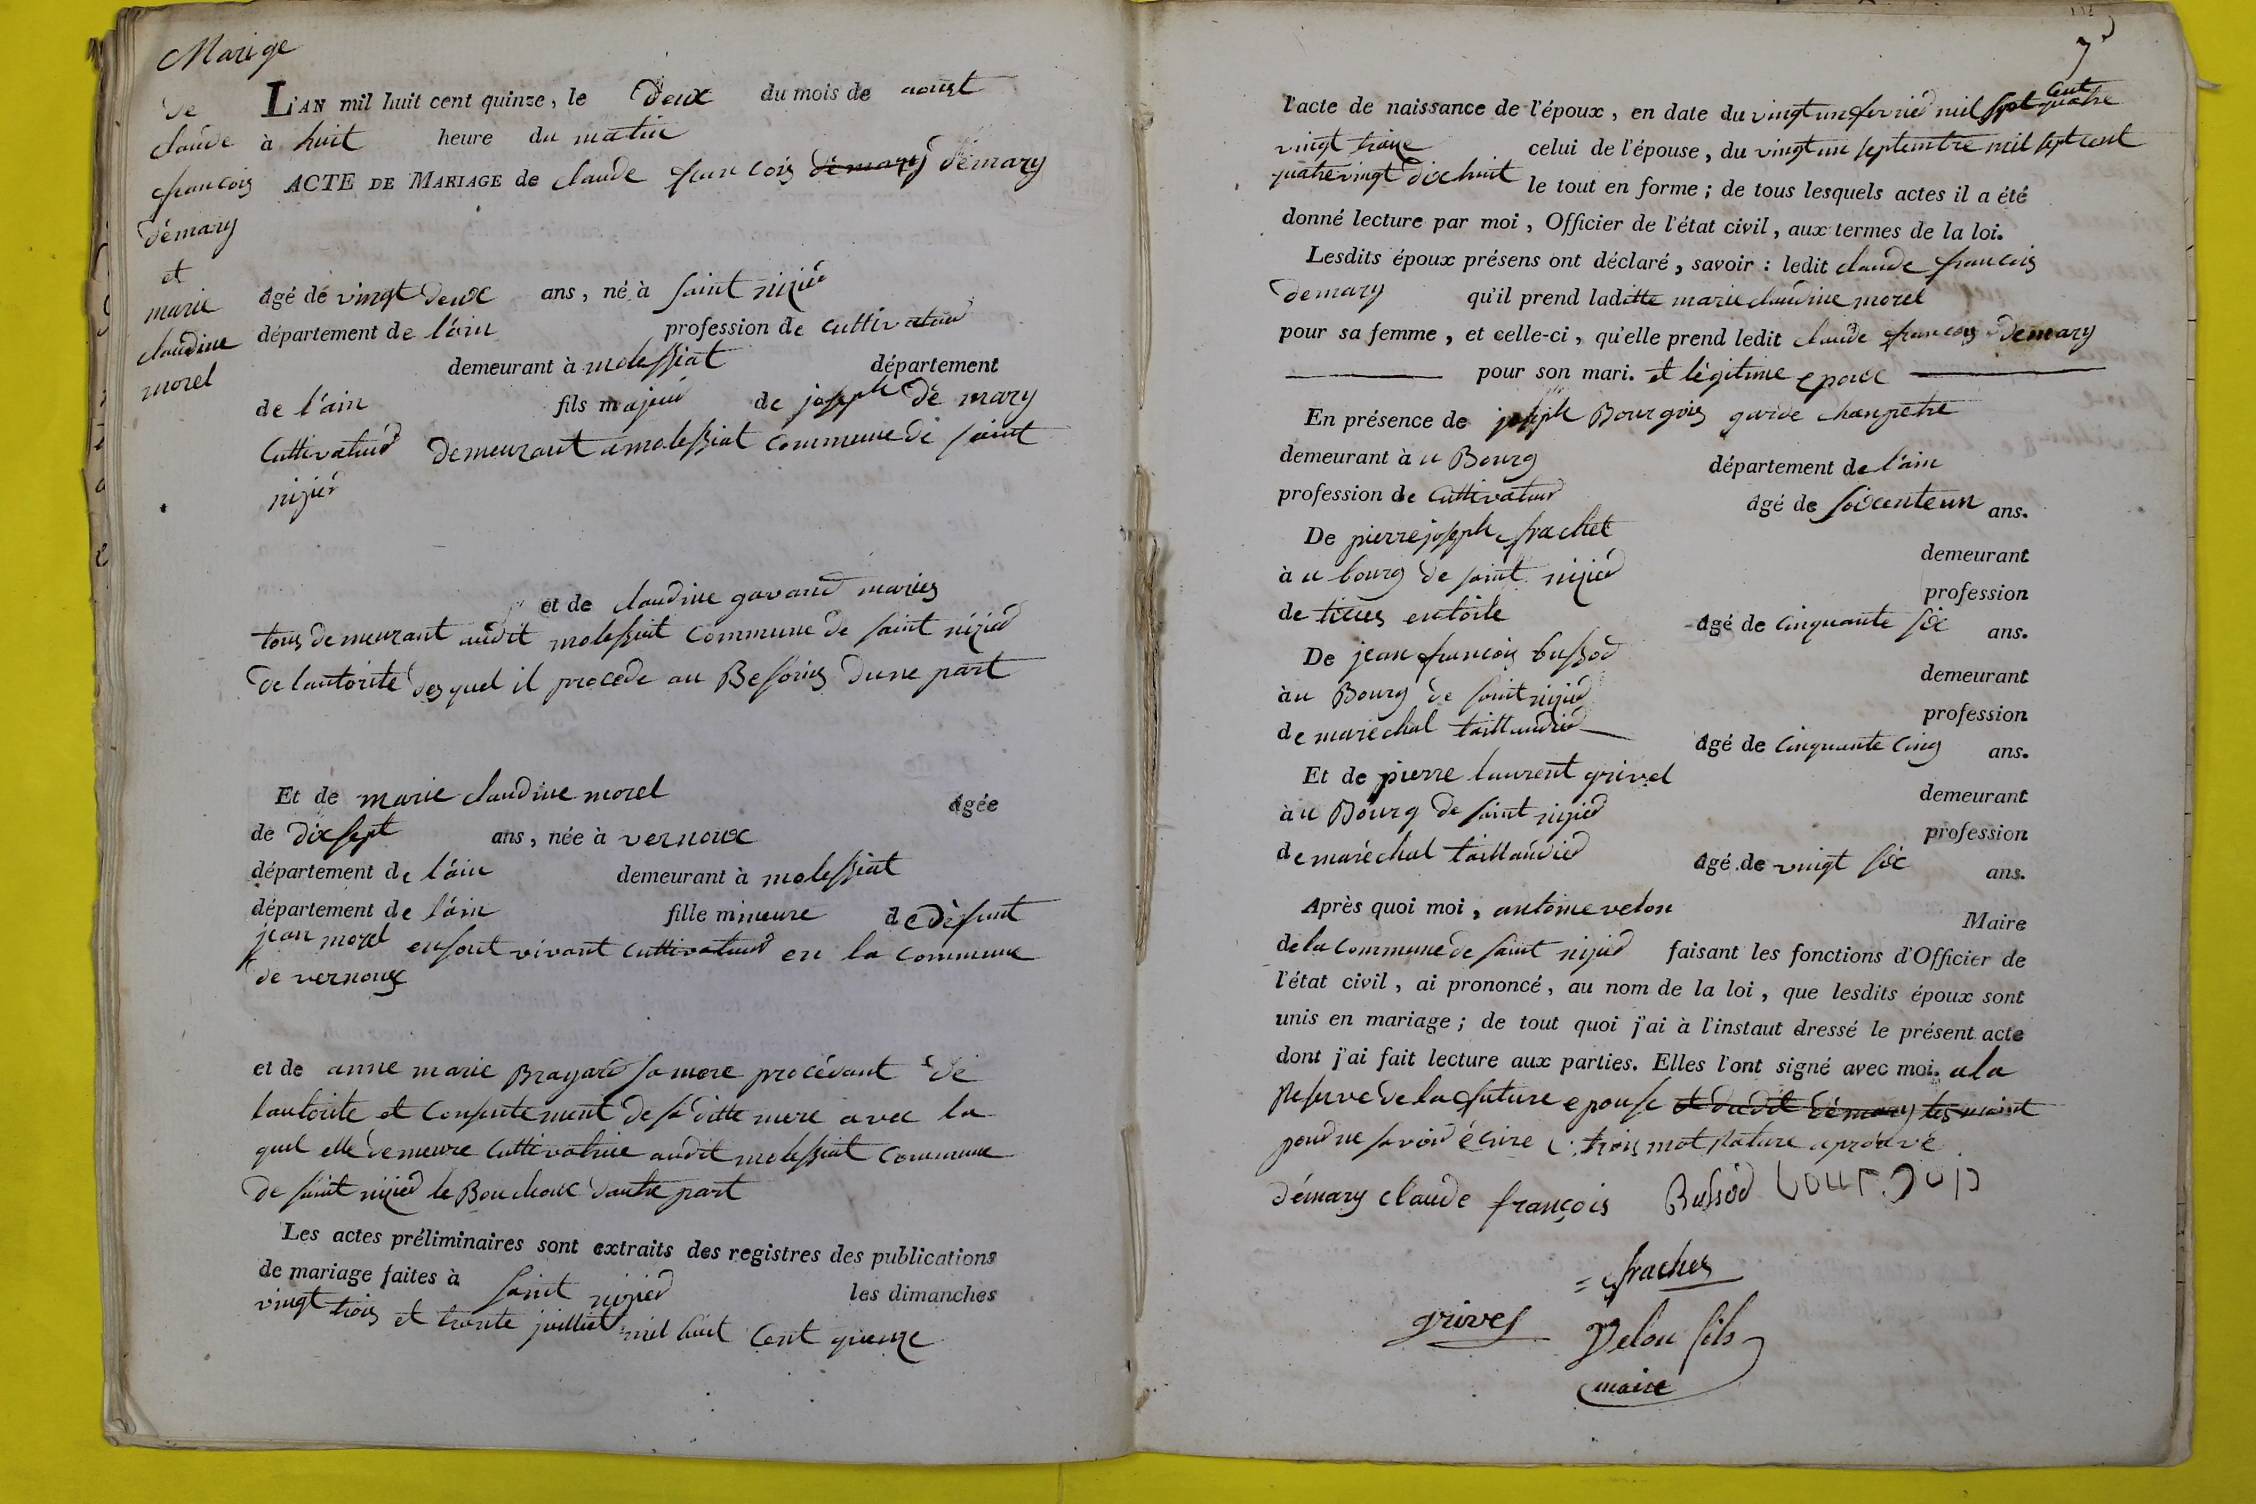 Marige
de
claude
francois
démary
et
marie
claudine
morel
L'AN mil huit cent quinze, le deux du mois de aoust
à huit heure du matin
ACTE DE MARIAGE de claude francois démary démary
âgé de vingt deux ans, né à saint nizied
département de l'áin profession de cultivateur
demeurant à molessiat département
de l'ain fils majeur de joseph dé mary
cultivateur demeurant a molessiat commune de saint
nizied
et de claudine gavand mariés
tous demeurant audit molessiat commune de saint nizied
de lautorité desquel il procede au Besoins dune part
Et de marie claudine morel âgée
de dix sept ans, née à vernoux
département de l'áin demeurant à molessiat
département de l'áin fille mineure de défunt
jean morel en sont vivant cultivateur en la commune
de vernoux
et de anne marie Brayard sa mere procédant de
lautorité et consentement de sa ditte mere avec la
quel elle demeure cultivatrice audit molessiat commune
de saint nizied le Bouchoux dautre part
Les actes préliminaires sont extraits des registres des publications
de mariage faites à saint nizied les dimanches
vingt trois et trente juilliet mil huit cent quinze
l'acte de naissance de l'époux, en date du vingt un fevried mil sept cent quatre
vingt traize celui de l'épouse, du vingt un septembre mil sept cent
quatre vingt dix huit le tout en forme; de tous lesquels actes il a été
donné lecture par moi, Officier de l'état civil, aux termes de la loi.
Lesdits époux présens ont déclaré, savoir: ledit claude francois
demary qu'il prend laditte marie claudine morel
pour sa femme, et celle-ci, qu'elle prend ledit claude francois demary
pour son mari. et légitime epoux
En présence de joseph Bourgois garde chanpetre
demeurant à u Bourg département de l'áin
profession de cultivateur âgé de soixcente un ans.
De pierre joseph frachet demeurant
à u bourg de saint nizied profession
de ticies en toile âgé de cinquante six ans.
De jean francois bussod demeurant
àu Bourg de saint nizied profession
de maréchal taillandied âgé de cinquante cinq ans.
Et de pierre laurent grivel demeurant
àu Bourg de saint nizied profession
de maréchal taillandied âgé de vingt six ans.
Après quoi moi, antoine velon Maire
de la commune de saint nizied faisant les fonctions d'Officier de
l'état civil, ai prononcé, au nom de la loi, que lesdits époux sont
unis en mariage; de tout quoi j'ai à l'instaut dressé le présent acte
dont j'ai fait lecture aux parties. Elles l'ont signé avec moi. a la
reserve de la future epouse et dudit démary
pour ne savoir écrire trois mot rature aprouvé
démary claude françois Bussod bourgois
frachet
grivel
Velon fils
maire